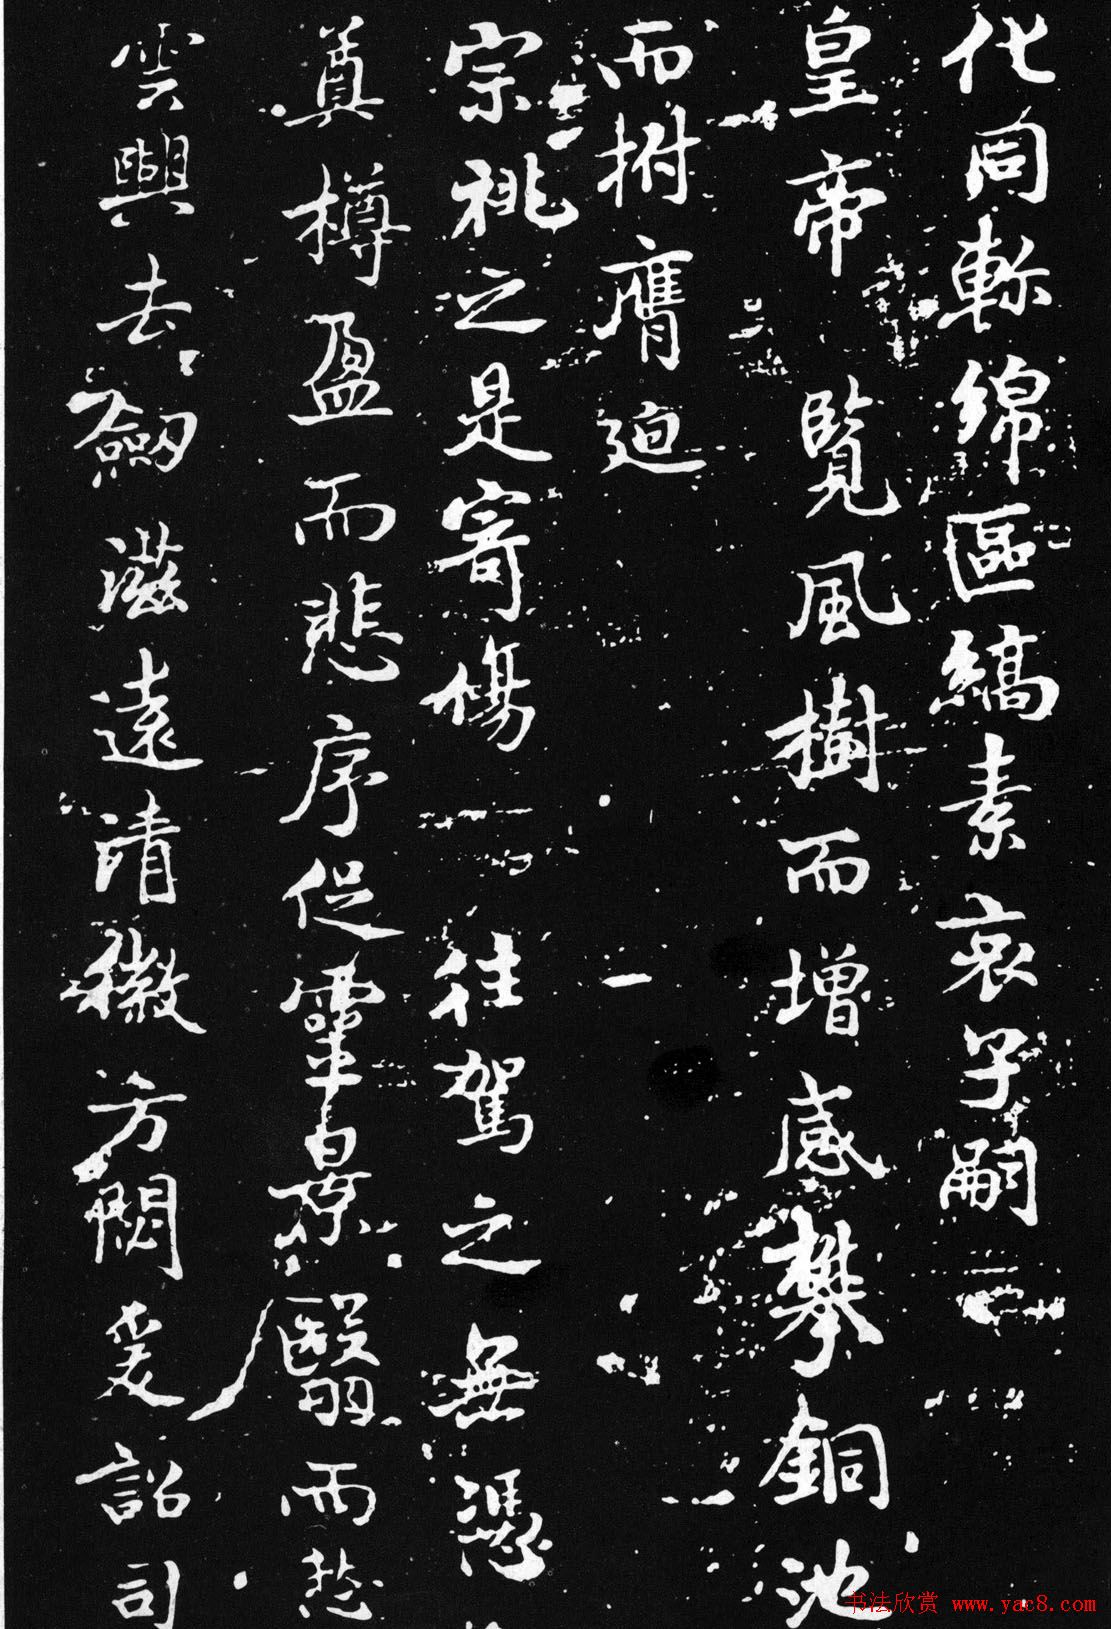 化同軫綿區縞素哀子嗣
皇帝覽風樹而增感攀銅池
而拊膺迫
宗祧之是寄傷往駕之無憑
奠樽盈而悲序促靈景翳而愁
雲興去劒滋遠清徽方閟爰詔司
书法欣赏 www.yac8.com